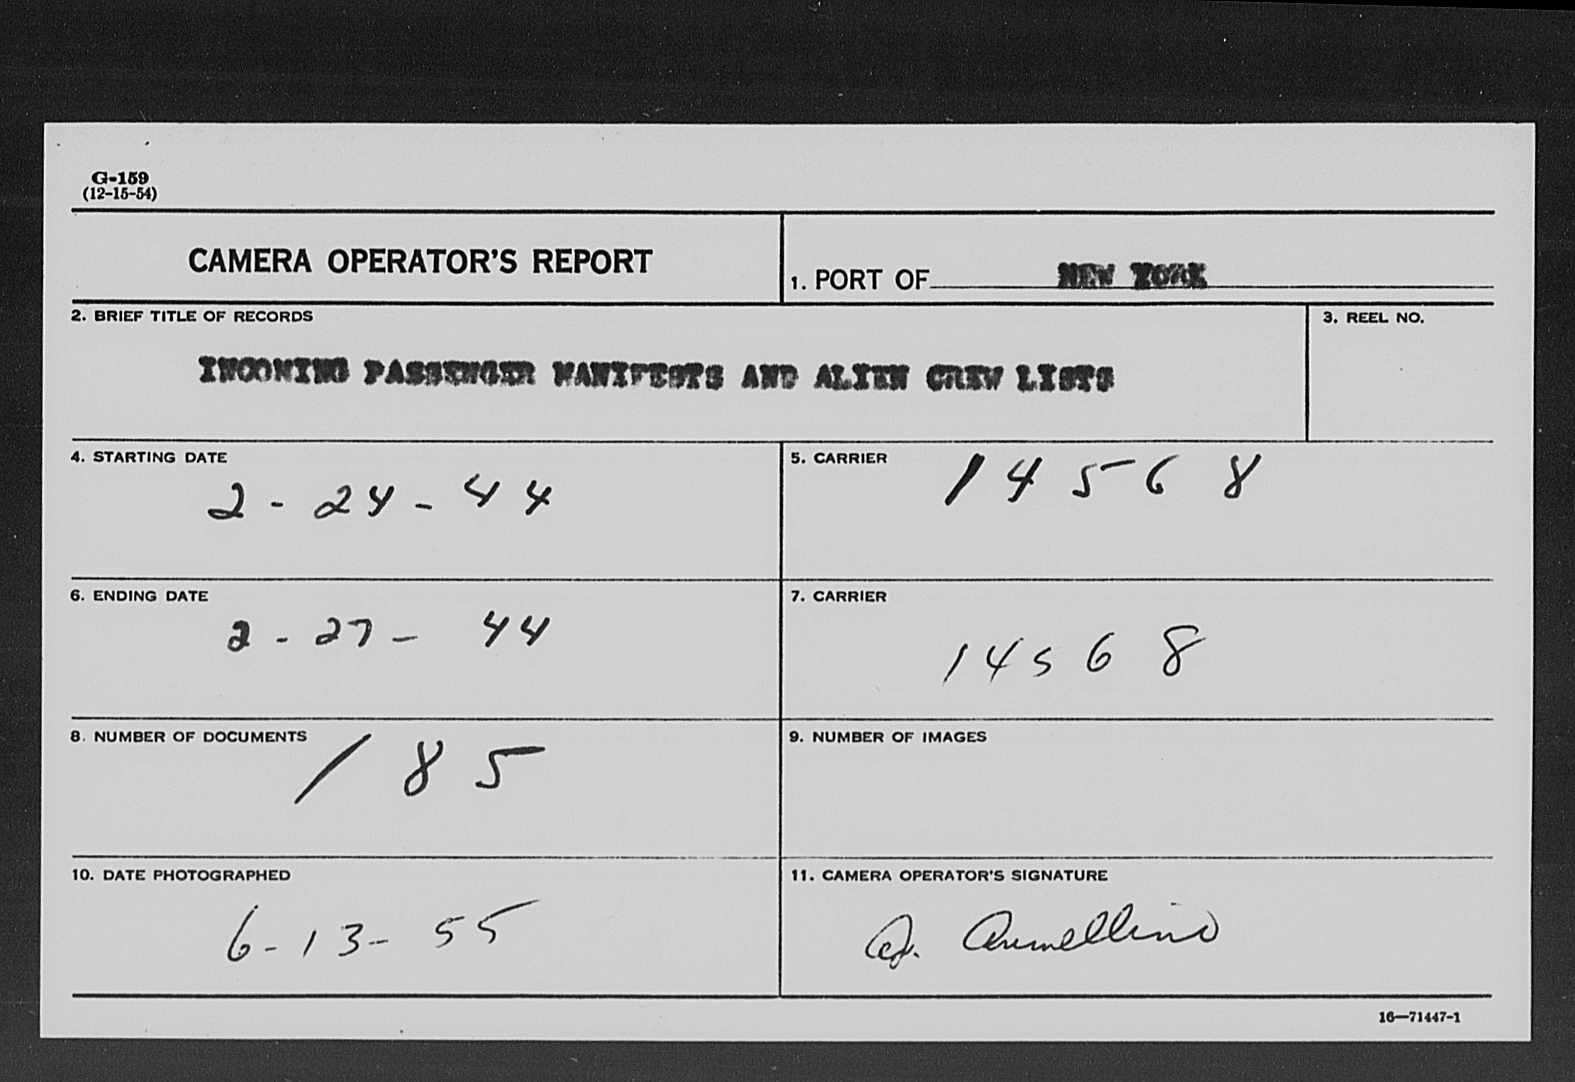 G-159
(12-15-54)
CAMERA OPERATOR'S REPORT
1. PORT OF NEW YORK
2. BRIEF TITLE OF RECORDS
3. REEL NO.
INCOMING PASSENGER MANIFESTS AND ALIEN CREW LISTS
4. STARTING DATE
2-24-44
5. CARRIER
14568
6. ENDING DATE
2-27-44
7. CARRIER
14568
8. NUMBER OF DOCUMENTS
185
9. NUMBER OF IMAGES
10. DATE PHOTOGRAPHED
6-13-55
11. CAMERA OPERATOR'S SIGNATURE
A. Armellino
16—71447-1